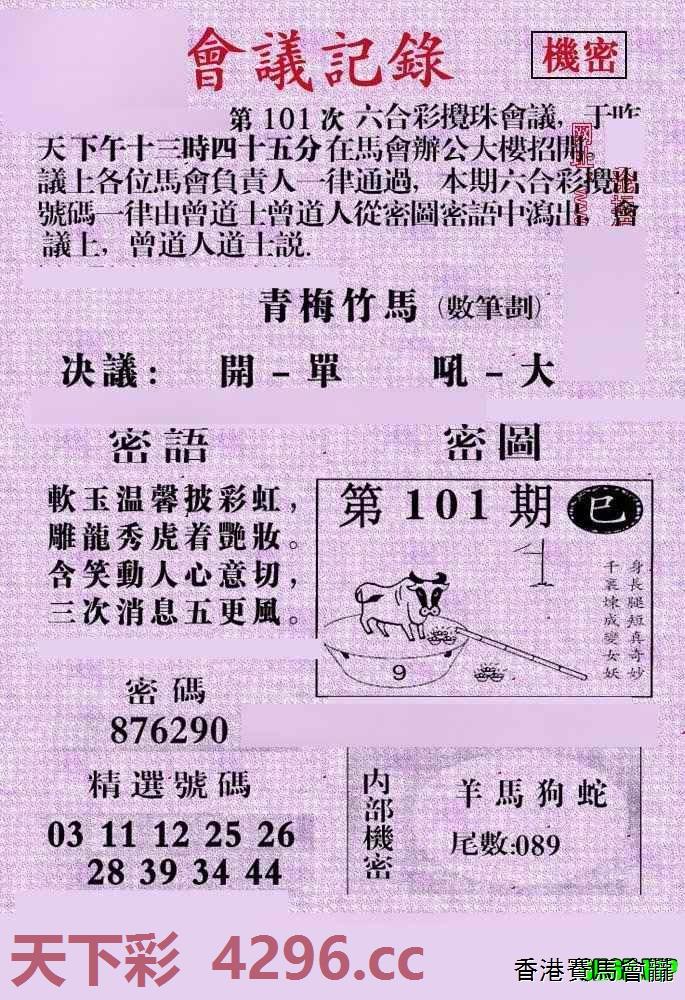 會議記錄
機密
第101次六合彩攪珠會議，于昨
天下午十三時四十五分在馬會辦公大樓招開
議上各位馬會負責人一律通過，本期六合彩攪出
號碼一律由曾道士曾道人從密圖密語中瀉出，會
議上，曾道人道士説.
青梅竹馬（數筆劃）
决議：開－單 吼－大
密語
軟玉温馨披彩虹，
雕龍秀虎着艷妝。
含笑動人心意切，
三次消息五更風。
密圖
第101期
巳
身長腿短真奇妙
千裏煉成變女妖
9
密碼
876290
精選號碼
03 11 12 25 26
28 39 34 44
内部機密
羊馬狗蛇
尾數:089
天下彩 4296.cc
香港賽馬會